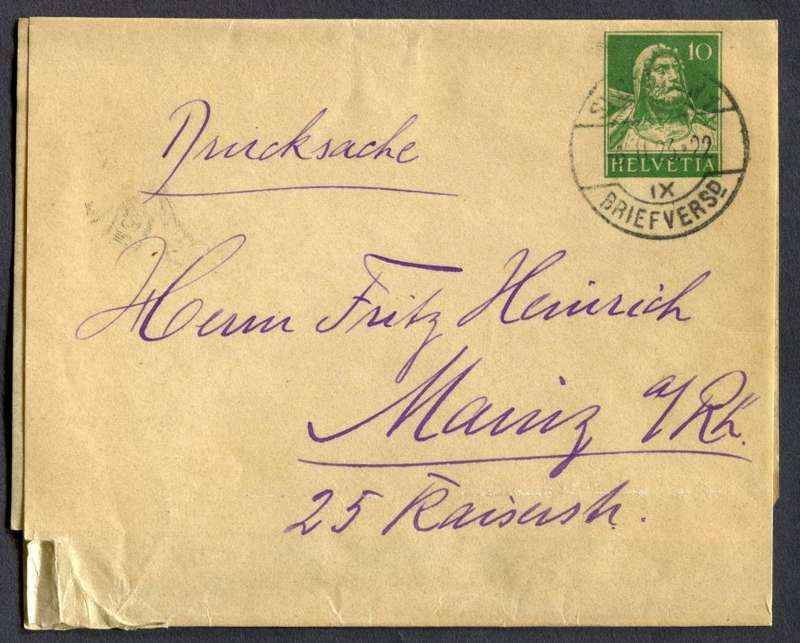 10
HELVETIA
IX
BRIEFVERSD.
Drucksache
Herrn Fritz Heinrich
Mainz a/Rh.
25 Kaiserstr.